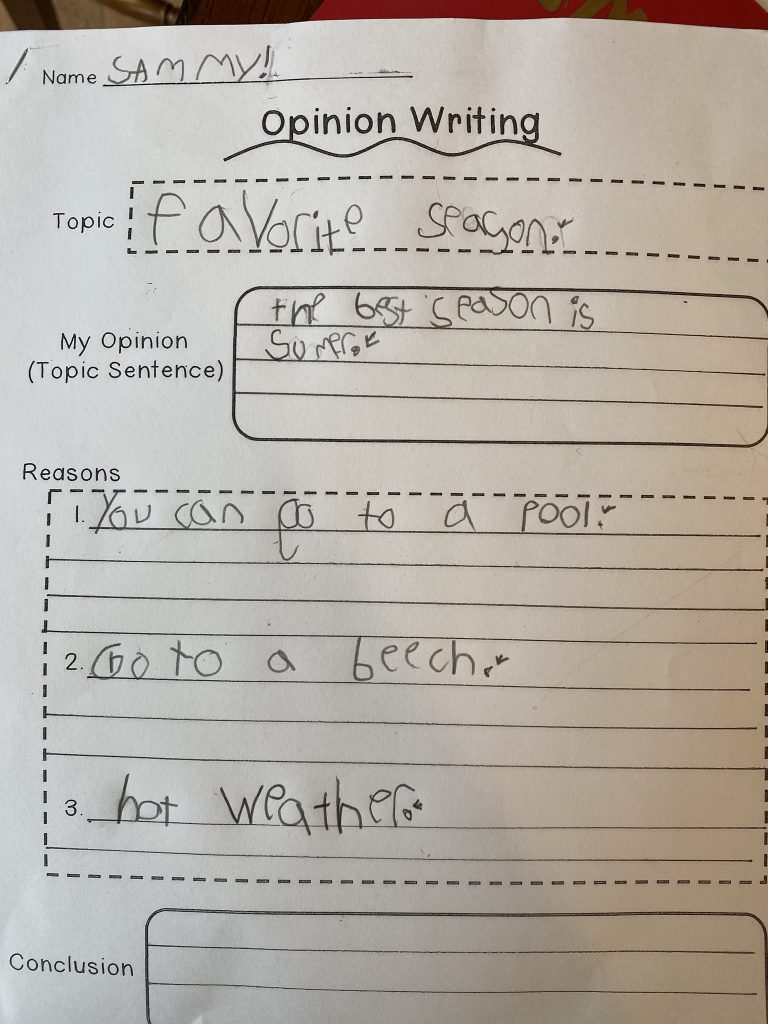 Name SAMMY!
Opinion Writing
Topic favorite season.
the best season is
My Opinion
sumer.
(Topic Sentence)
Reasons
1. You can go to a pool.
2. Go to a beech.
3. hot weather.
Conclusion